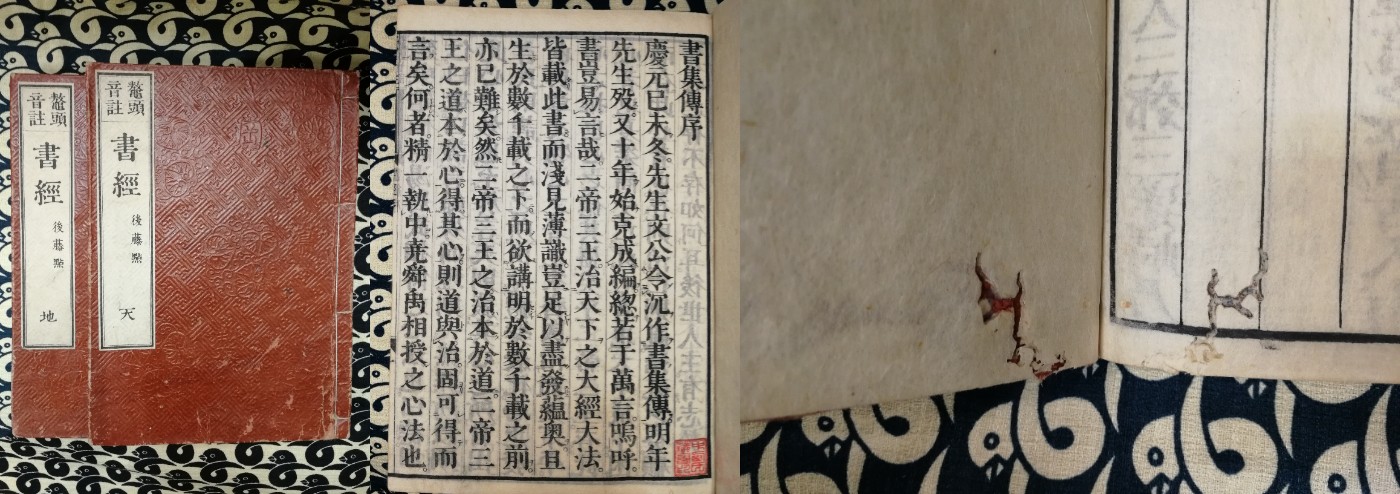 鼇頭
音註
書經
後藤㸃
地
鼇頭
音註
書經
後藤㸃
天
書集傳序
慶元已未冬先生文公令沉作書集傳明年
先生歿又十年始克成編總若干萬言嗚呼
書豈易言哉二帝三王治天下之大經大法
皆載此書而淺見薄識豈足以盡發蘊奥且
生於數千載之下而欲講明於數千載之前
亦已難矣然二帝三王之治本於道二帝三
王之道本於心得其心則道與治固可得而
言矣何者精一執中堯舜禹相授之心法也